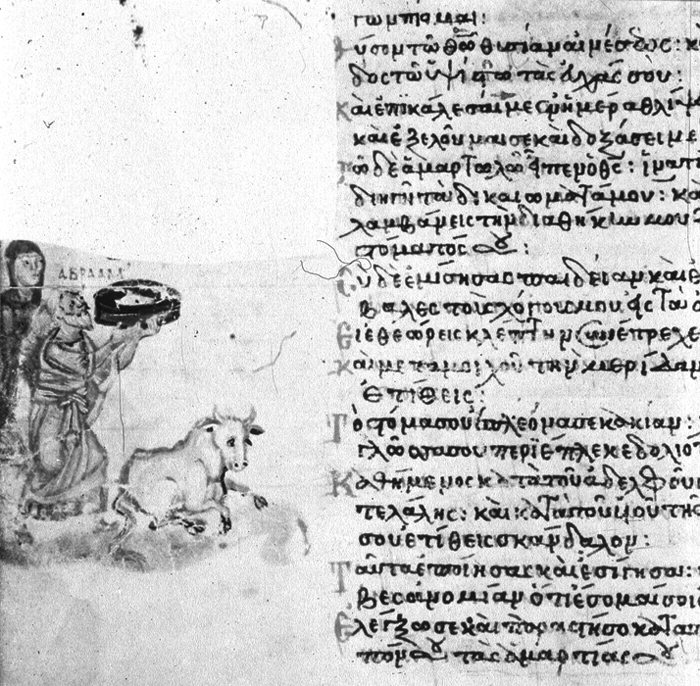 ΑΒΡΑΑΜ
γων πίομαι:
Θύσον τῶ θω θυσίαν αἰνέσεως: κ
δος τῶ ὑψίστω τὰς εὐχάς σου:
Καὶ ἐπικάλεσαι με ἐν ἡμέρα θλίψ
καὶ ἐξελοῦμαι σε καὶ δοξάσει με
Τῶ δὲ ἁμαρτωλῶ εἶπεν ὁ θς: ἱνατί
διηγῆ τὰ δικαιώματά μου: κα
λαμβάνεις τὴν διαθήκην μου
στόματός σου:
Σὺ δὲ ἐμίσησας παιδείαν καὶ ἐ
βαλες τοὺς λόγους μου εἰς τὰ
Εἰ ἐθεώρεις κλέπτην συνέτρεχε
καὶ μετὰ μοιχοῦ τὴν μερίδαν
ἐτίθεις:
Τὸ στόμα σου ἐπλεόνασε κακίαν:
γλῶσσά σου περιέπλεκε δολιότ
Καθήμενος κατὰ τοῦ ἀδελφοῦ
τελάλης: καὶ κατὰ τοῦ υἱοῦ τῆς
σου ἐτίθεις σκάνδαλον:
Ταῦτα ἐποίησας καὶ ἐσίγησα:
βες ἀνομίαν ὅτι ἔσομαί σοι
Ἐλέγξω σε καὶ παραστήσω κατὰ π
πον σου τὰς ἁμαρτίας σου